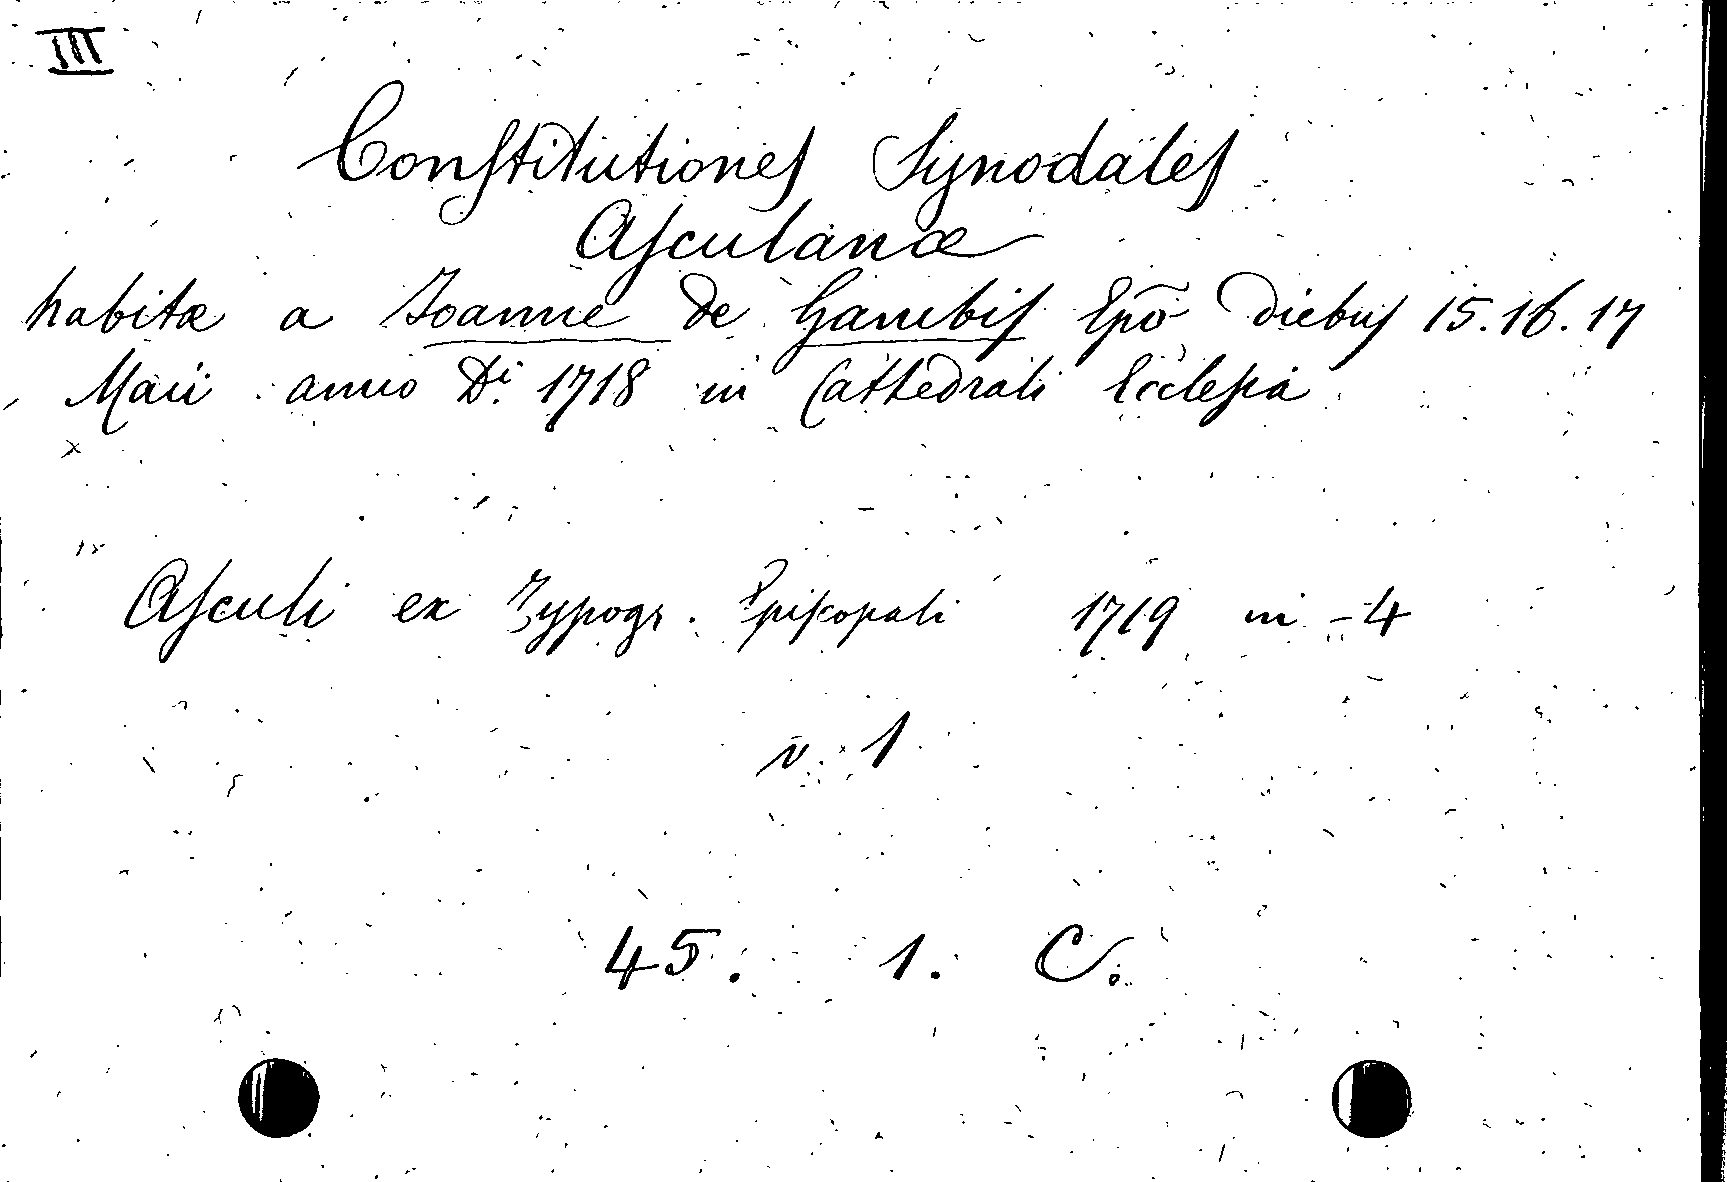 III
Constitutiones Synodales
Asculanæ
habitæ a Joanne de Gambis Epõ diebus 15. 16. 17
Maii anno Di. 1718 in Cattedrali Ecclesia
Asculi ex Typogr. Episcopali 1719 in -4
v. 1
45. 1. C.